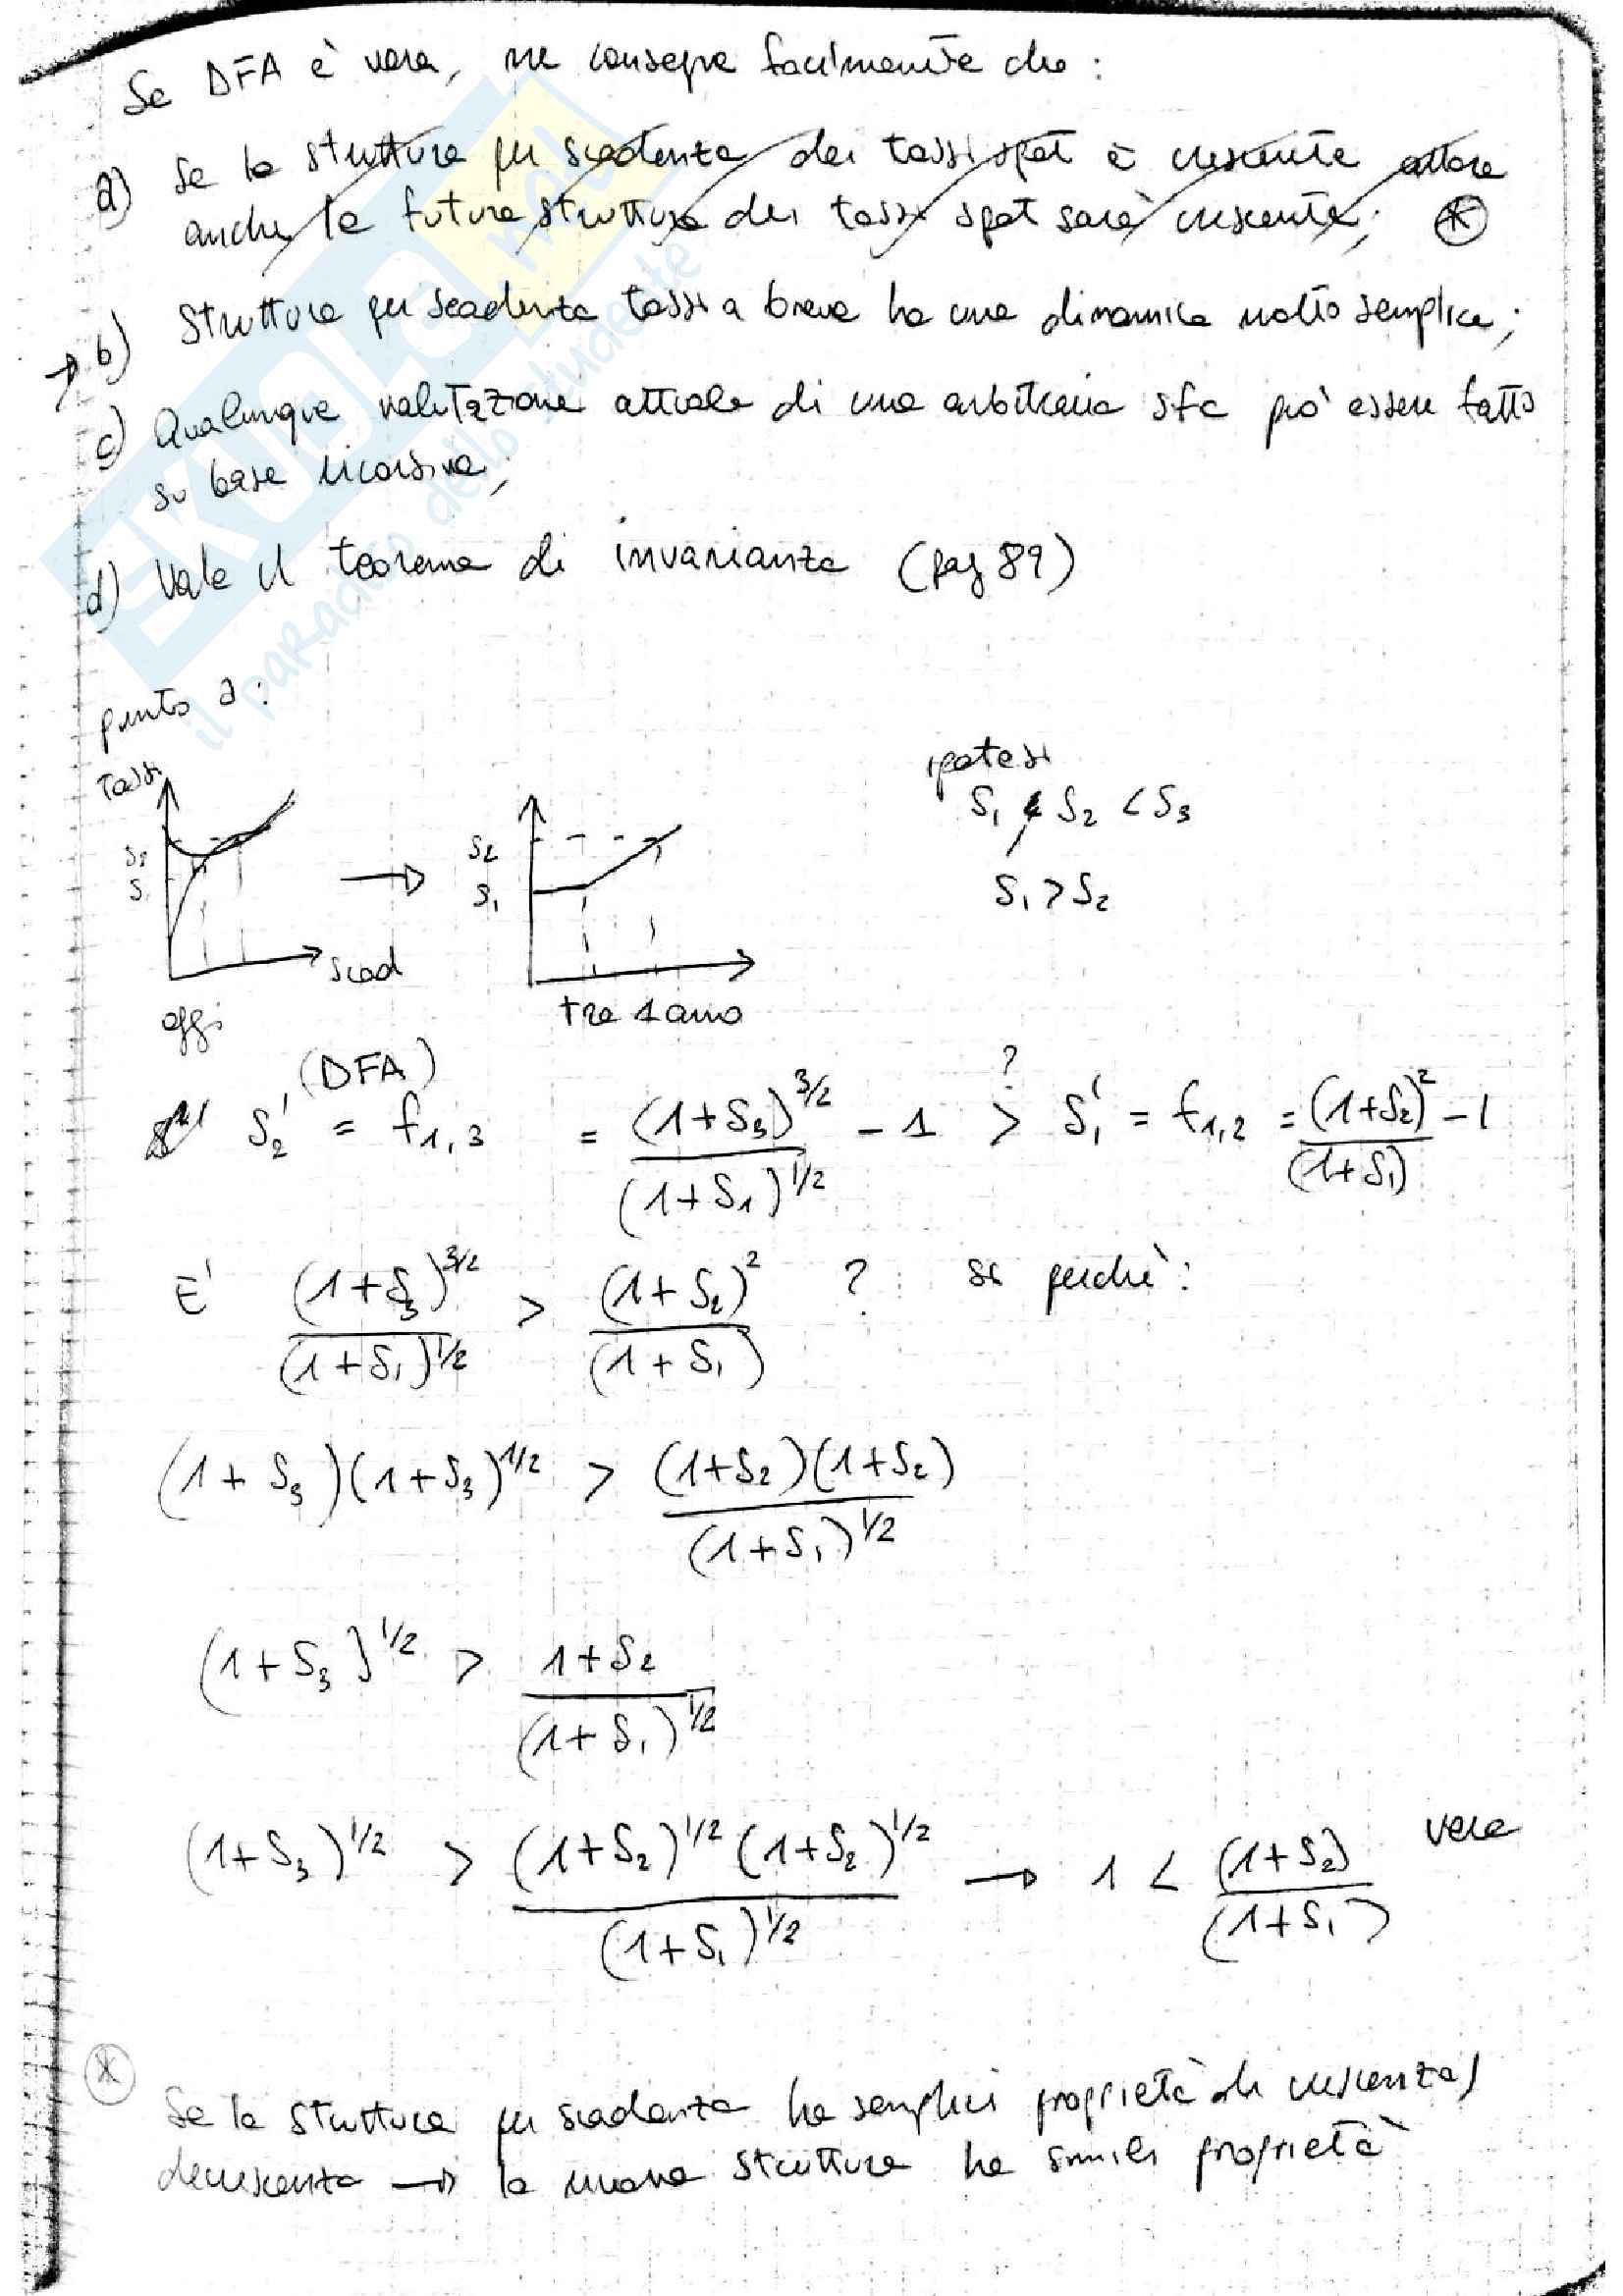 Se DFA è vera, ne consegue facilmente che:
a) Se la struttura per scadenza dei tassi spot è crescente allora
anche la futura struttura dei tassi spot sarà crescente; *
→ b) Struttura per scadenza tassi a breve ha una dinamica molto semplice;
c) Qualunque valutazione attuale di una arbitraria sfc può essere fatto
su base ricorsiva;
d) Vale il teorema di invarianza (pag 89)
SKUOLA.net
il paradiso dello studente
punto a:
tassi
S2
S1
scad
oggi
S2
S1
tra 1 anno
ipotesi
S1 < S2 < S3
S1 > S2
(DFA)
S2' = f1,3 = (1+S3)^3/2 / (1+S1)^1/2 - 1 >? S1' = f1,2 = (1+S2)^2 / (1+S1) - 1
E' (1+S3)^3/2 / (1+S1)^1/2 > (1+S2)^2 / (1+S1) ? si perché:
(1+S3)(1+S3)^1/2 > (1+S2)(1+S2) / (1+S1)^1/2
(1+S3)^1/2 > 1+S2 / (1+S1)^1/2
(1+S3)^1/2 > (1+S2)^1/2 (1+S2)^1/2 / (1+S1)^1/2 → 1 < (1+S2) / (1+S1) vera
* Se la struttura per scadenza ha semplici proprietà di crescenza/
decrescenza → la nuova struttura ha simili proprietà